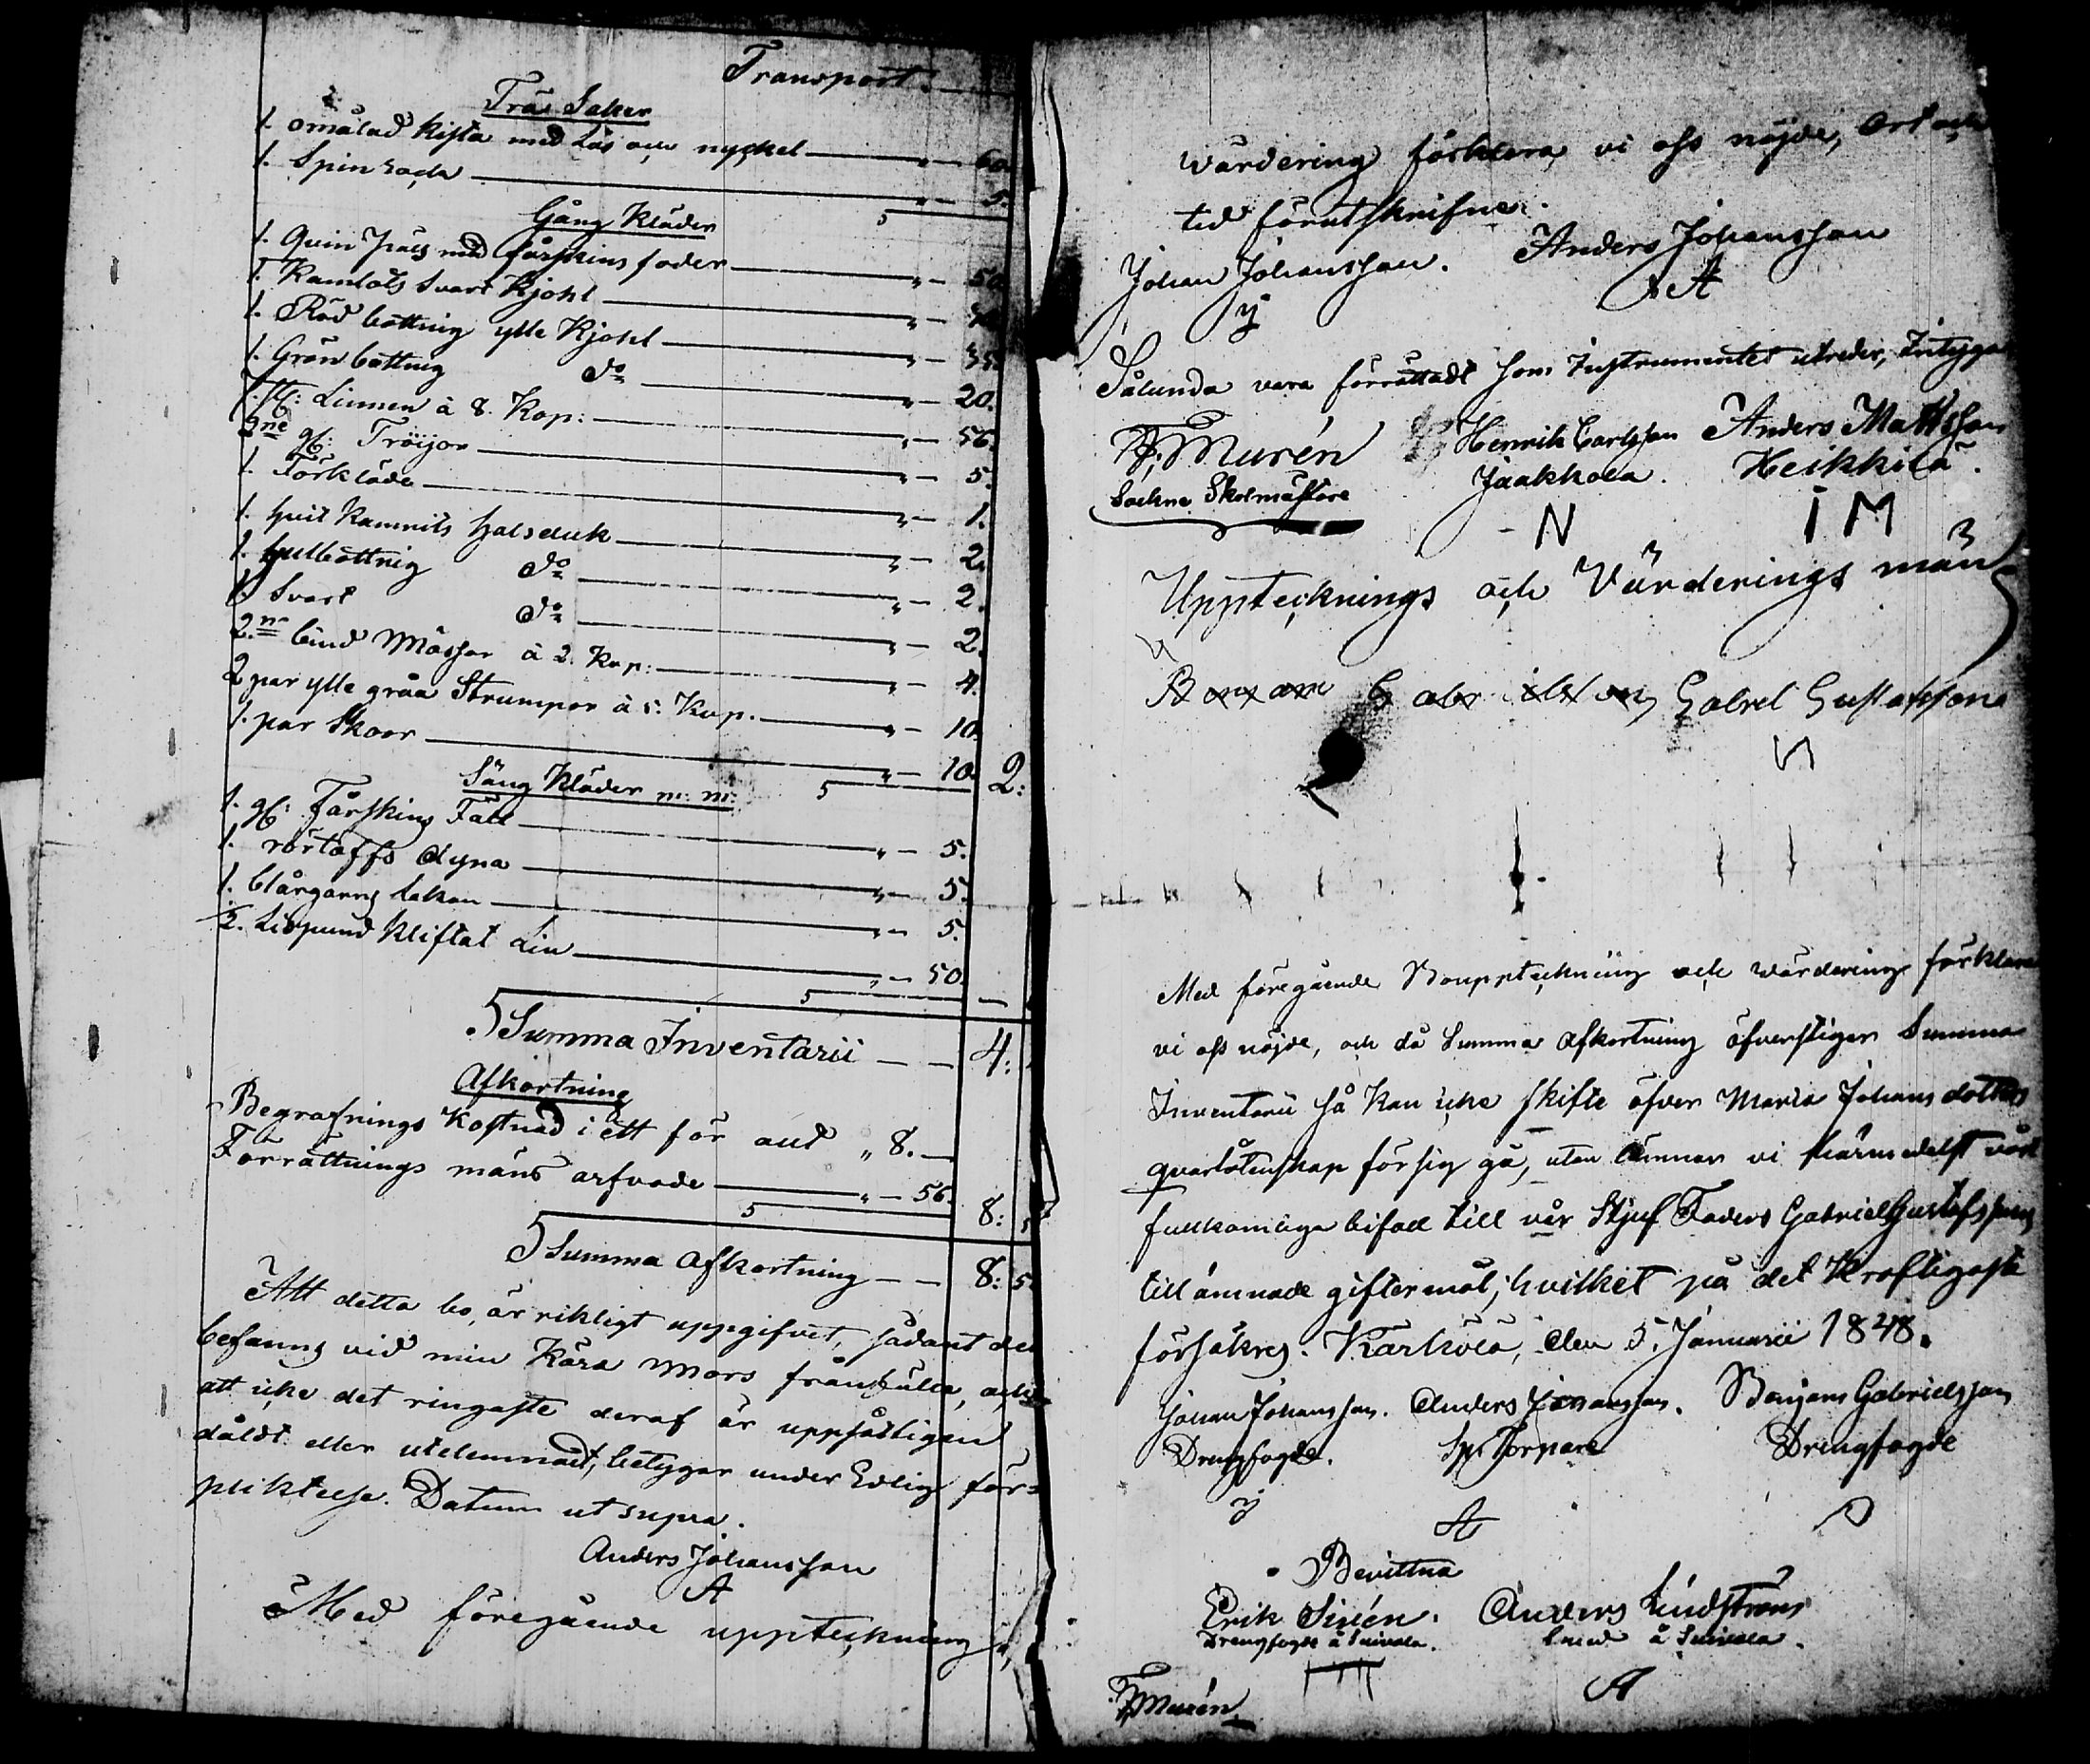 Transport.
Trä Saker
1. omålad Kista med Lås och nyckel — „ — 60.
1. Spinråck — „ — 5.
Gång Kläder
1. Qvin päls med fårskins foder — „ — 50.
1. Kamlots Svart Kjohl — „ —
1. Röd bottnig ylle Kjohl — „ — 35.
1. Grön bottnig do — „ — 20.
7. st: Linnen à 8. Kop: — „ — 56.
2ne gl: Tröijor — „ — 5.
1. Förkläde — „ — 1.
1. hvit Kamrits halsduk — „ — 2.
1. hvitbottnig do — „ — 2.
1. Svart do — „ — 2.
2ne bind Mössor à 2. Kop: — „ — 4.
2 par ylle gråa Strumpor à 5. Kop. — „ — 10.
1. par Skoor — „ — 10. 2:
Säng Kläder m: m:
1. gl: Fårskins Fäll — „ — 5.
1. dyna — „ — 5.
1. blårgarns lakan — „ — 5.
½. Lispund Kliftat Lin — „ — 50.
Summa Inventarii — — 4:
Afkortning
Begrafnings Kostnad i ett för allt „ 8. —
Förrättnings mäns arfvode — „ — 56. 8: 5
Summa Afkortning — — 8: 5
Att detta bo, är riktigt uppgifvet, sådant det
befanns vid min Kära Mors frånfälle, och
att icke det ringaste deraf är uppsåtligen
doldt eller utelemnadt, betygar under Edlig för=
pliktelse. Datum ut supra.
Anders Johansson
A
Med föregående uppteckning
värdering förklara vi oss nöjde, Ort och
tid förutskrifne.
Johan Johansson. Anders Johansson
A
Sålunda vara förrättadt som Instrumentet utreder, Intyga
Murén Henrik Carlsson Anders Mattsson
Sockne Skolmästare Jaakkola. Heikkilä.
N I M
Upptecknings och Värderings män
Gabrel Gustafsson
Med föregående Bouppteckning och värdering förklara
vi oss nöjde, och då Summa Afkortning öfverstiger Summa
Inventarii så kan icke skifte öfver Maria Johansdotters
qvarlåtenskap försig gå, utan lämnar vi härmedelst vårt
fullkomliga bifall till vår Stjuf Faders Gabriel Gustafssons
tillämnade giftermål, hvilket på det Kraftigaste
försäkres. Karkola, den 5. Januarii 1848.
Johan Johansson. Anders Johansson. Benjam Gabrielsson
Drengfogde. Sp: Torpare Drengfogde
A
Bevittna
Erik Sinén. Anders Lindström
Drengfogde å Suivala. Smed å Suivala.
A
Murén